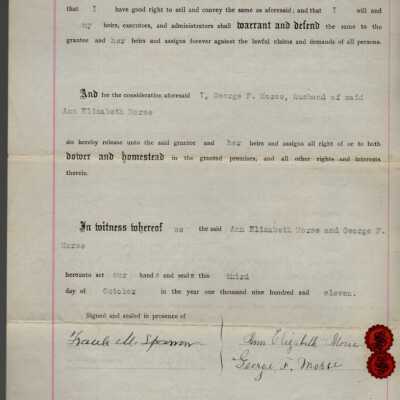 that I have good right to sell and convey the same as aforesaid; and that I will and
my heirs, executors, and administrators shall warrant and defend the same to the
grantee and her heirs and assigns forever against the lawful claims and demands of all persons.
And for the consideration aforesaid I, George F. Morse, husband of said
Ann Elizabeth Morse
do hereby release unto the said grantee and her heirs and assigns all right of or to both
dower and homestead in the granted premises, and all other rights and interests
therein.
In witness whereof we the said Ann Elizabeth Morse and George F.
Morse
hereunto set our hands and seals this third
day of October in the year one thousand nine hundred and eleven.
Signed and sealed in presence of
Frank M. Sparrow
Ann Elizabeth Morse
George F. Morse